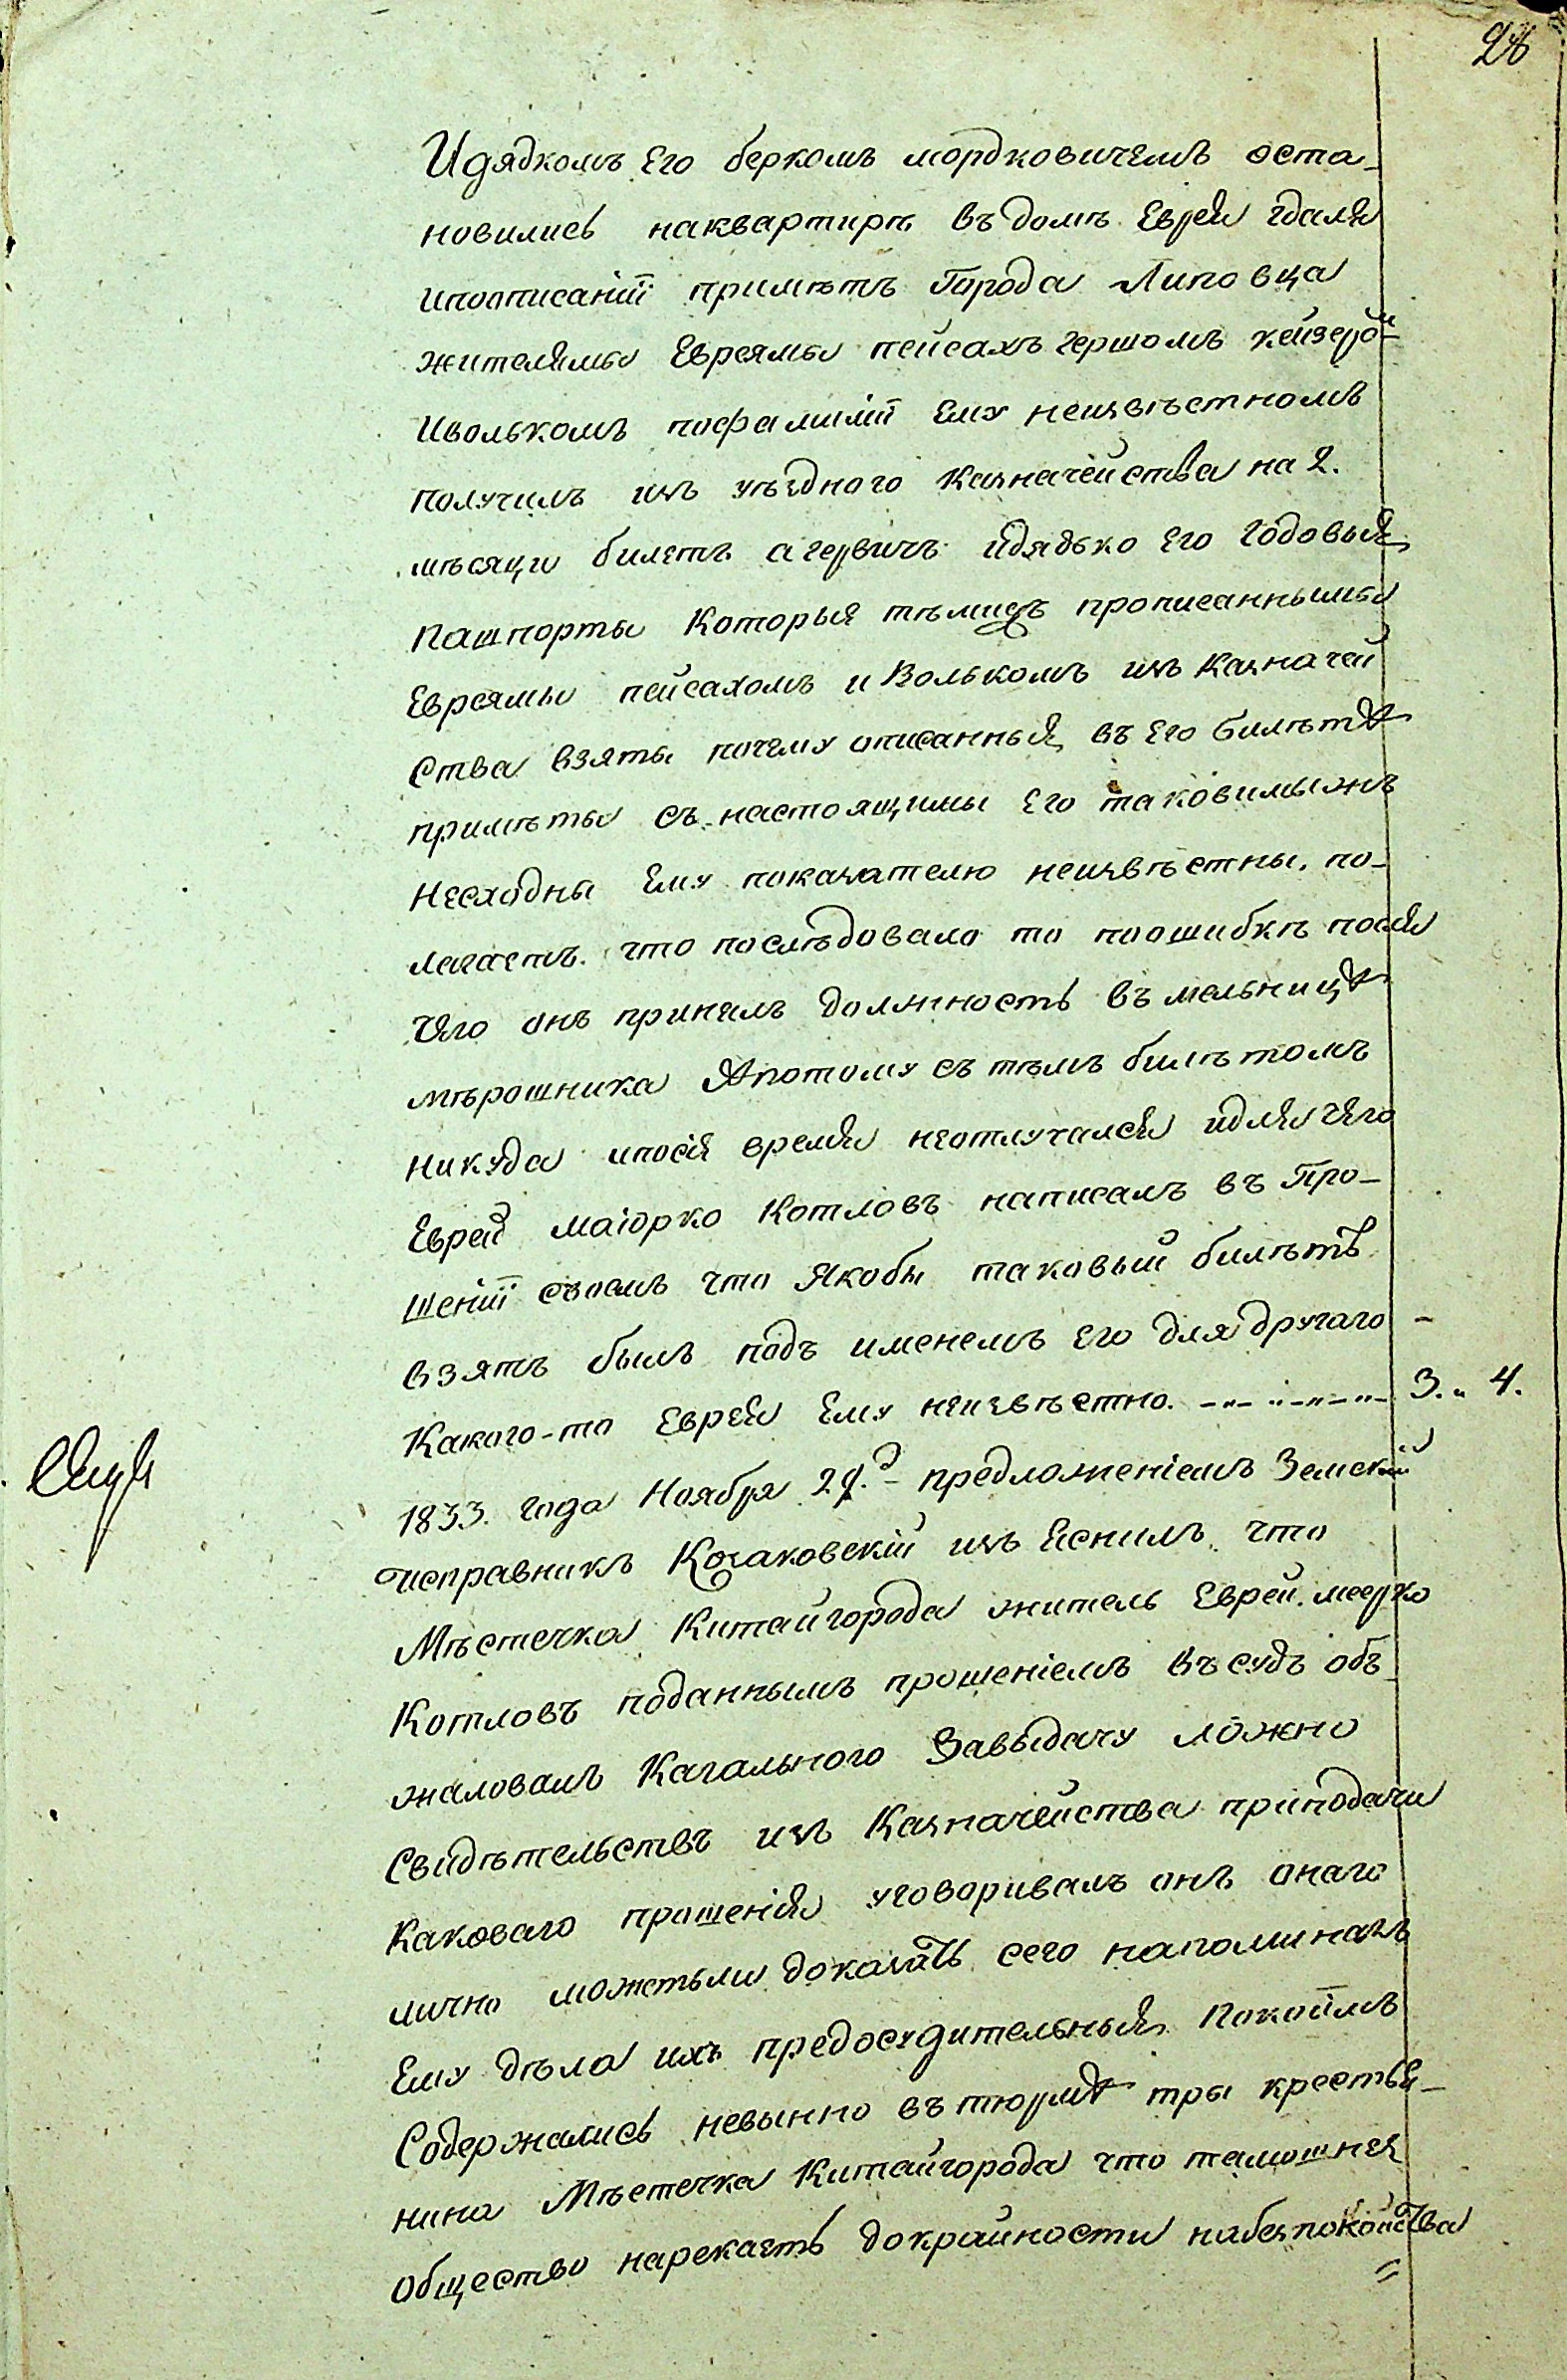 28
Идядкомъ Его беркомъ мордковичемъ оста-
новились наквартирѣ въ домѣ Еврея гдаля
ипоописаніи примѣтъ Города Липовца
жителямы Евреямы пейсахъ гершомъ
Иволькомъ пофамиліи Ему неизвѣстномъ
получилъ изъ уѣздного Казначейства на 2.
мѣсяци билетъ а идядько Его Годовыя
Пашпорты Которыя тѣмижъ прописаннымы
Евреямы пейсахомъ и Волькомъ изъ Казначей
Ства взяты почему описанныя въ Его билѣтѣ
примѣты съ настоящимы Его таковимыжъ
Несходны Ему показателю неизвѣстны. по-
лагаетъ что послѣдовало то поошибкѣ посля
чего онъ принялъ должность въ мельницѣ
мѣрошника Апотому съ тѣмъ билѣтомъ
никуда ипосіе время неотлучался идля чего
Еврей маіорко Котловъ написалъ въ Про-
шеніи своемъ что Якобы таковый билѣтъ
взятъ былъ подъ именемъ Его для другаго -
Какого-то Еврея Ему неизвѣстно. 3. „ 4.
1833. года Ноября предложеніемъ Земскій
исправникъ изъяснилъ что
Мѣстечка Китайгорода житель Еврей меерко
Котловъ поданнымъ прошеніемъ въ судъ об-
жаловалъ Кагального Завыдачу ложно
Свидѣтельствъ изъ Казначейства приподачи
Каковаго прошенія уговоривалъ онъ онаго
лично можетъли доказать сего напоминалъ
Ему дѣла ихъ предосудительныя Покоимъ
Содержались невынно въ тюрмѣ тры крестья-
нина Мѣстечка Китайгорода что тамошнея
общество нарекаетъ докрайности набезпокойства